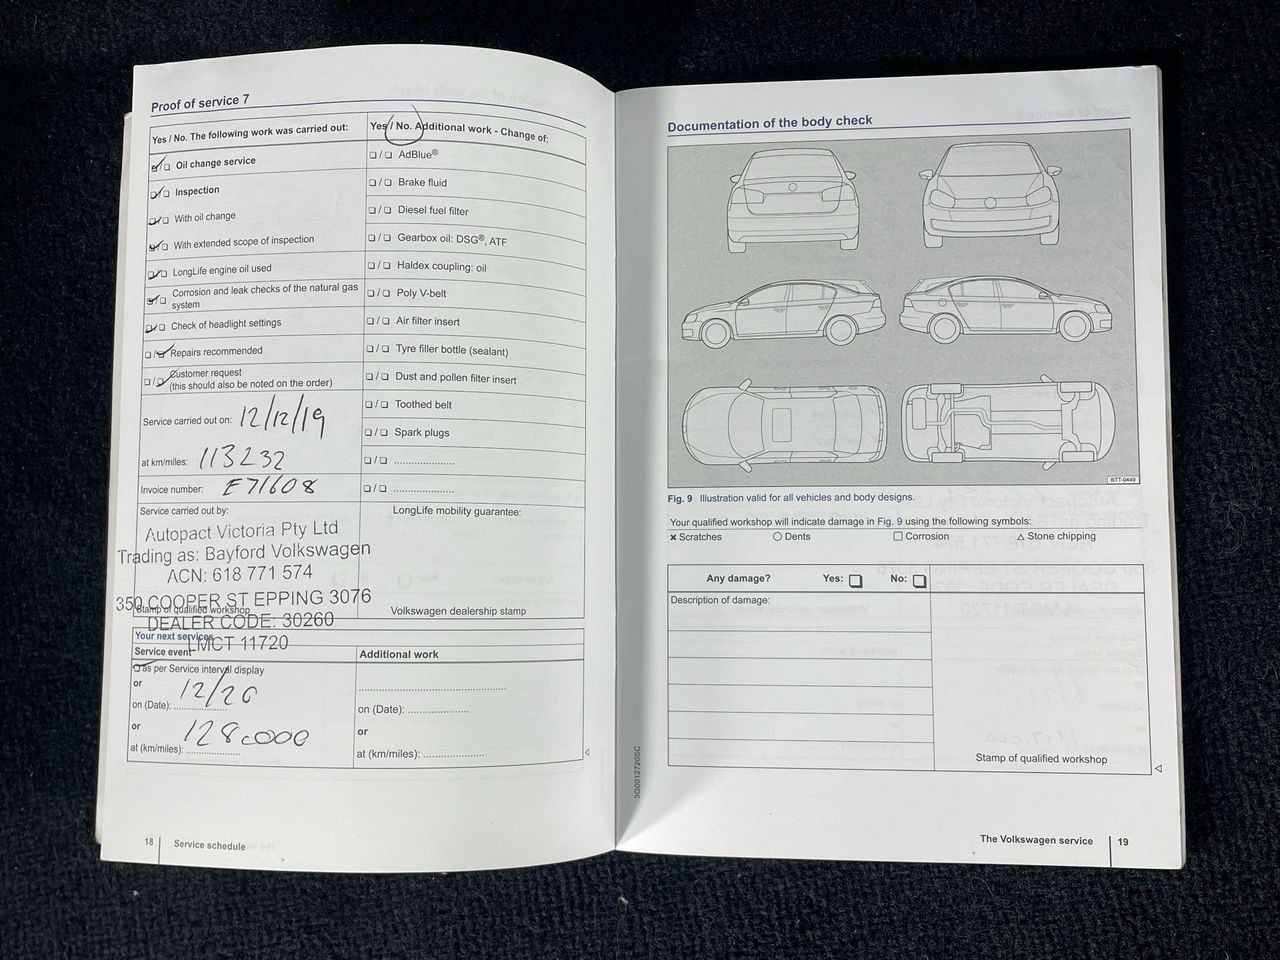 Proof of service 7
Yes / No. The following work was carried out:
Oil change service
Inspection
With oil change
With extended scope of inspection
LongLife engine oil used
Corrosion and leak checks of the natural gas
system
Check of headlight settings
Repairs recommended
Customer request
(this should also be noted on the order)
Service carried out on: 12/12/19
at km/miles: 113232
Invoice number: E71608
Service carried out by:
Autopact Victoria Pty Ltd
Trading as: Bayford Volkswagen
ACN: 618 771 574
350 COOPER ST EPPING 3076
Stamp of qualified workshop
DEALER CODE: 30260
LMCT 11720
Yes / No. Additional work - Change of:
AdBlue®
Brake fluid
Diesel fuel filter
Gearbox oil: DSG®, ATF
Haldex coupling: oil
Poly V-belt
Air filter insert
Tyre filler bottle (sealant)
Dust and pollen filter insert
Toothed belt
Spark plugs
LongLife mobility guarantee:
Volkswagen dealership stamp
Your next services
Service event
as per Service interval display
or
on (Date): 12/20
or
at (km/miles): 128000
Additional work
on (Date):
or
at (km/miles):
18 Service schedule
Documentation of the body check
BTT-0449
Fig. 9 Illustration valid for all vehicles and body designs.
Your qualified workshop will indicate damage in Fig. 9 using the following symbols:
Scratches Dents Corrosion Stone chipping
Any damage? Yes: No:
Description of damage:
Stamp of qualified workshop
3G0012720SC
The Volkswagen service 19